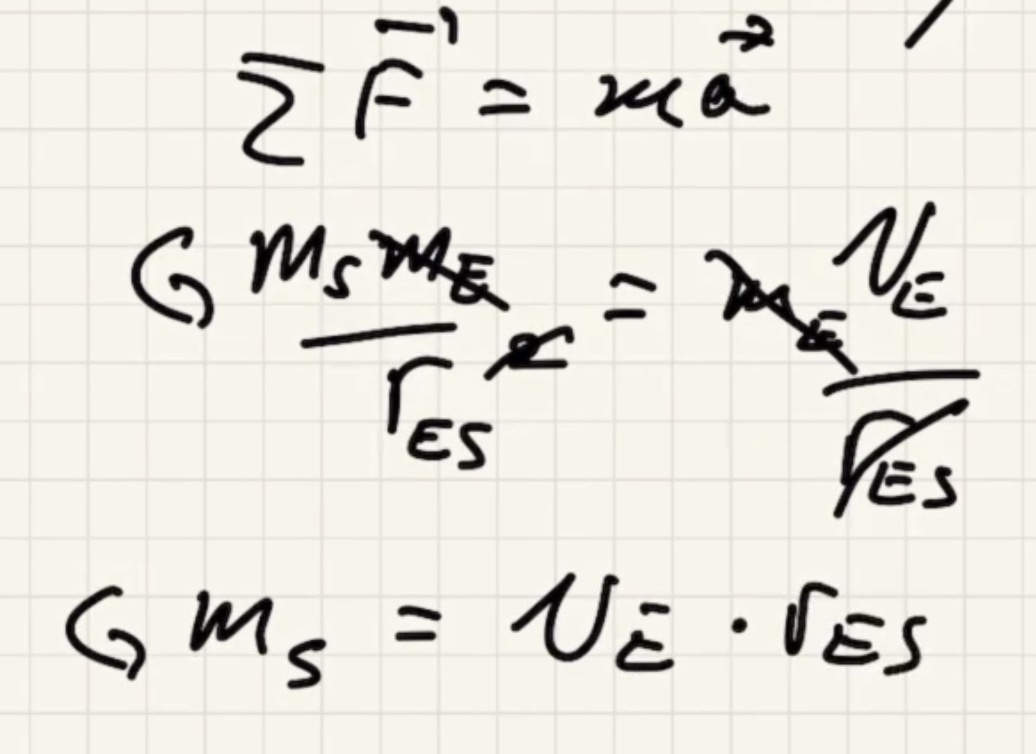 ∑ F⃗ = m a⃗
G m_S m_E / r_ES² = m_E v_E / r_ES
G m_S = v_E · r_ES